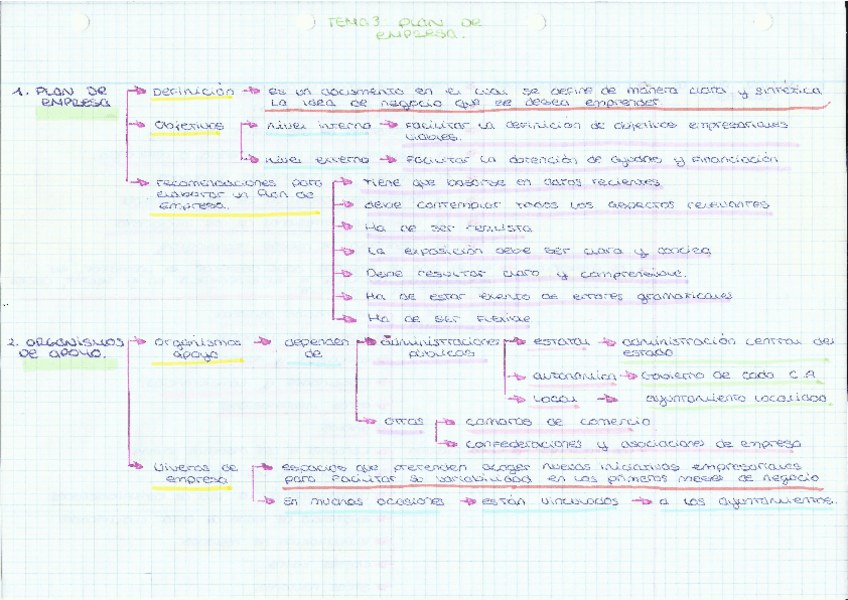 TEMA 3 PLAN DE
EMPRESA.
1. PLAN DE EMPRESA → Definición → es un documento en el cual se define de manera clara y sintética
la idea de negocio que se desea emprender
→ Objetivos → nivel interno → Facilitar la definición de objetivos empresariales
viables.
→ nivel externo → Facilitar la obtención de ayudas y financiación
→ recomendaciones para
elaborar un Plan de
Empresa.
→ Tiene que basarse en datos recientes
→ debe contemplar todos los aspectos relevantes
→ Ha de ser realista
→ La exposición debe ser clara y concisa
→ Debe resultar claro y comprensible.
→ Ha de estar exento de errores gramaticales
→ Ha de ser flexible
2. ORGANISMOS
DE APOYO.
→ organismos
apoyo
→ dependen
de
→ administraciones
públicas
→ estatal → administración central del
estado
→ autonómica → Gobierno de cada C.A
→ local → ayuntamiento localidad
→ otras → cámaras de comercio
→ confederaciones y asociaciones de empresa
→ Viveros de
empresa
→ espacios que pretenden acoger nuevas iniciativas empresariales
para facilitar su variabilidad en los primeros meses de negocio
→ En muchas ocasiones → están vinculados → a los ayuntamientos.